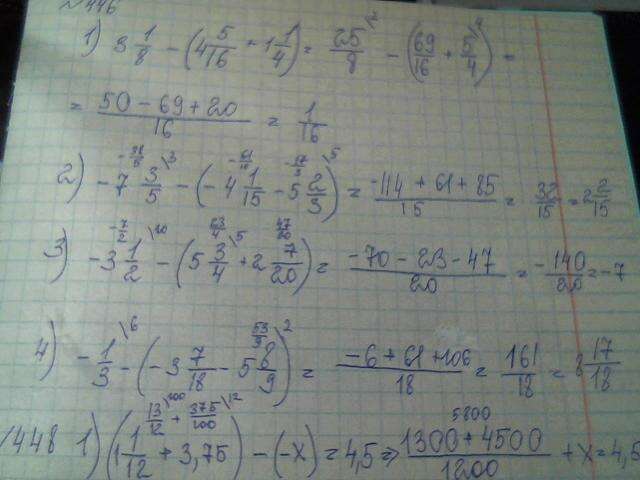 №446
1) 3 1/8 − (4 5/16 + 1 1/4) = 25/8 \2 − (69/16 + 5/4 \4) =
= (50 − 69 + 20)/16 = 1/16
2) −7 3/5 \3 − (−4 1/15 − 5 2/3 \5) = (−114 + 61 + 85)/15 = 32/15 = 2 2/15
−7/2 63/4 47/20
3) −3 1/2 \10 − (5 3/4 \5 + 2 7/20) = (−70 − 23 − 47)/20 = −140/20 = −7
53/9
4) −1/3 \6 − (−3 7/18 − 5 8/9 \2) = (−6 + 61 + 106)/18 = 161/18 = 8 17/18
13/12 \100 + 375/100 \12
1448 1) (1 1/12 + 3,75) − (−x) = 4,5 => (1300 + 4500)/1200 + x = 4,5
5800